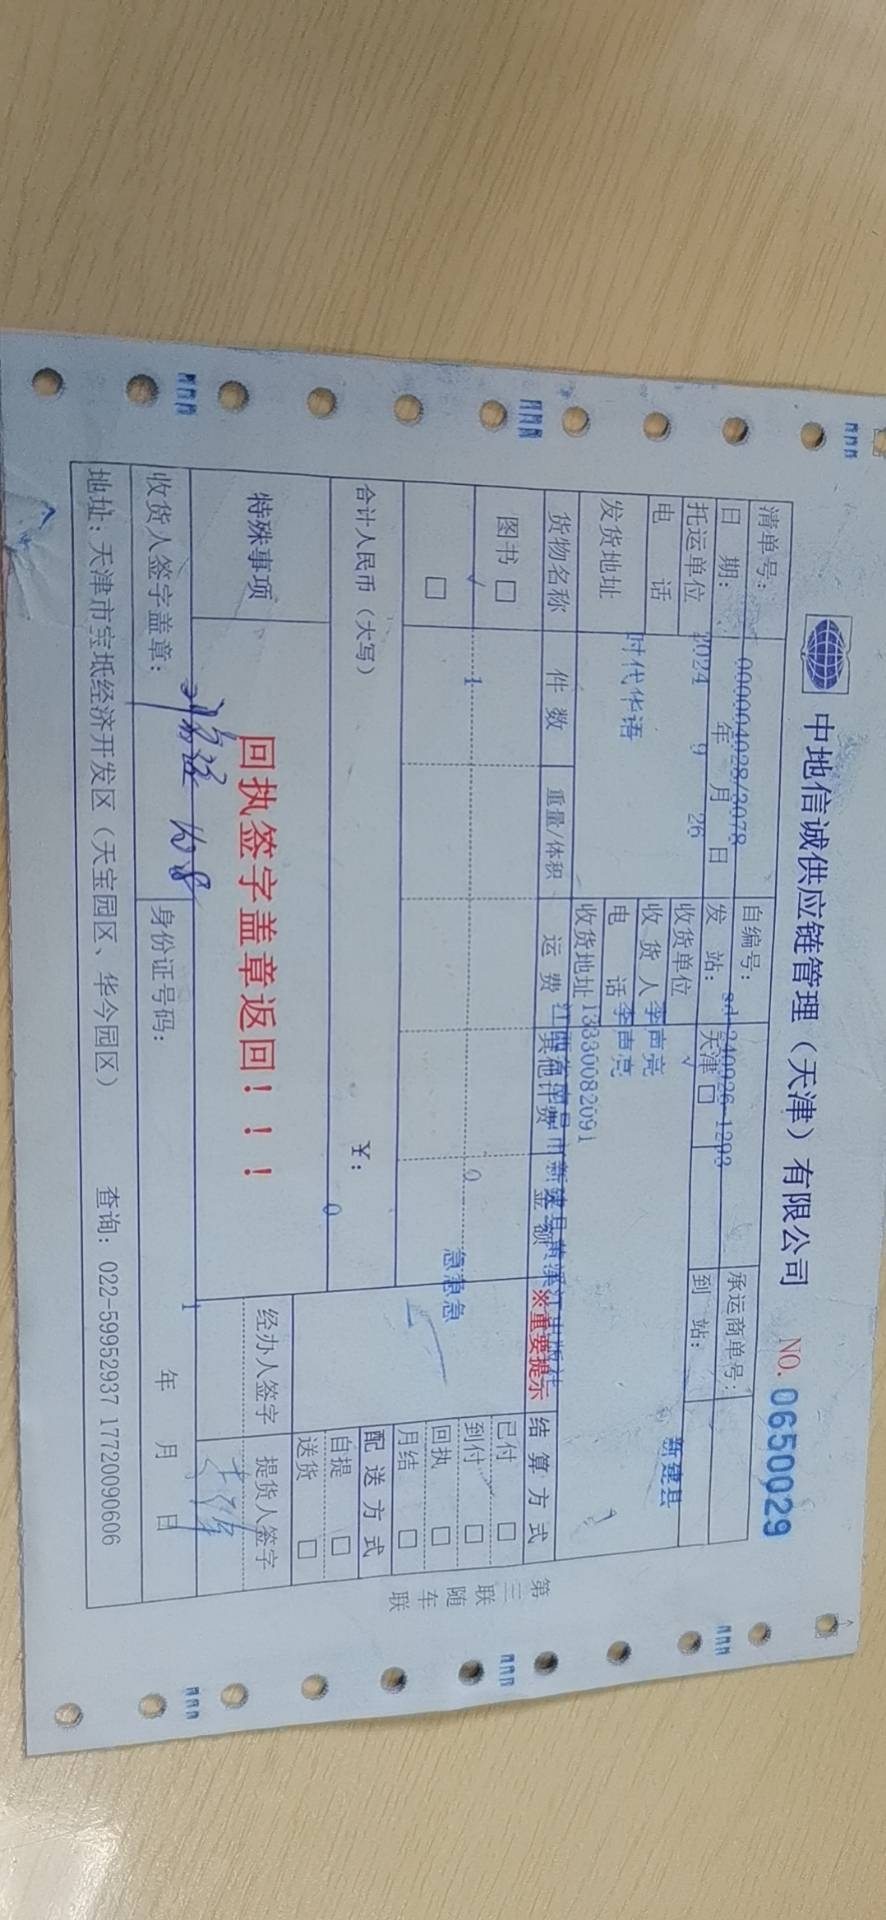 中地信诚供应链管理（天津）有限公司 NO. 0650029
清单号： 000004028/3078 自编号： sd-240926-1203 承运商单号：
日 期： 2024 年 9 月 26 日 发 站： 天津 □ √ 到 站： 新建县
托运单位 收货单位
电 话 时代华语 收 货 人 李声亮
电 话 李声亮
发货地址 收货地址 13330082091
货物名称 件 数 重量/体积 运 费 其他计费 金 额 ※重要提示 结 算 方 式
图书 □ √ 1 0 急急急 已付 □
到付 □
□ 回执 □
月结 □
合计人民币（大写） ¥： 0 配 送 方 式
自提 □
送货 □
特殊事项 回执签字盖章返回！！！ 经办人签字 提货人签字
收货人签字盖章： 身份证号码： 1 年 月 日
地址：天津市宝坻经济开发区（天宝园区、华今园区） 查询：022-59952937 17720090606
第三联 随车联